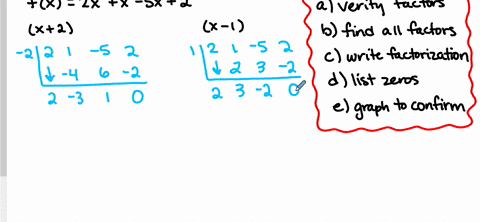 f(x) = 2x³+x²-5x+2
(x+2)
-2 2 1 -5 2
↓ -4 6 -2
2 -3 1 0
(x-1)
1 2 1 -5 2
↓ 2 3 -2
2 3 -2 0
a) verify factors
b) find all factors
c) write factorization
d) list zeros
e) graph to confirm